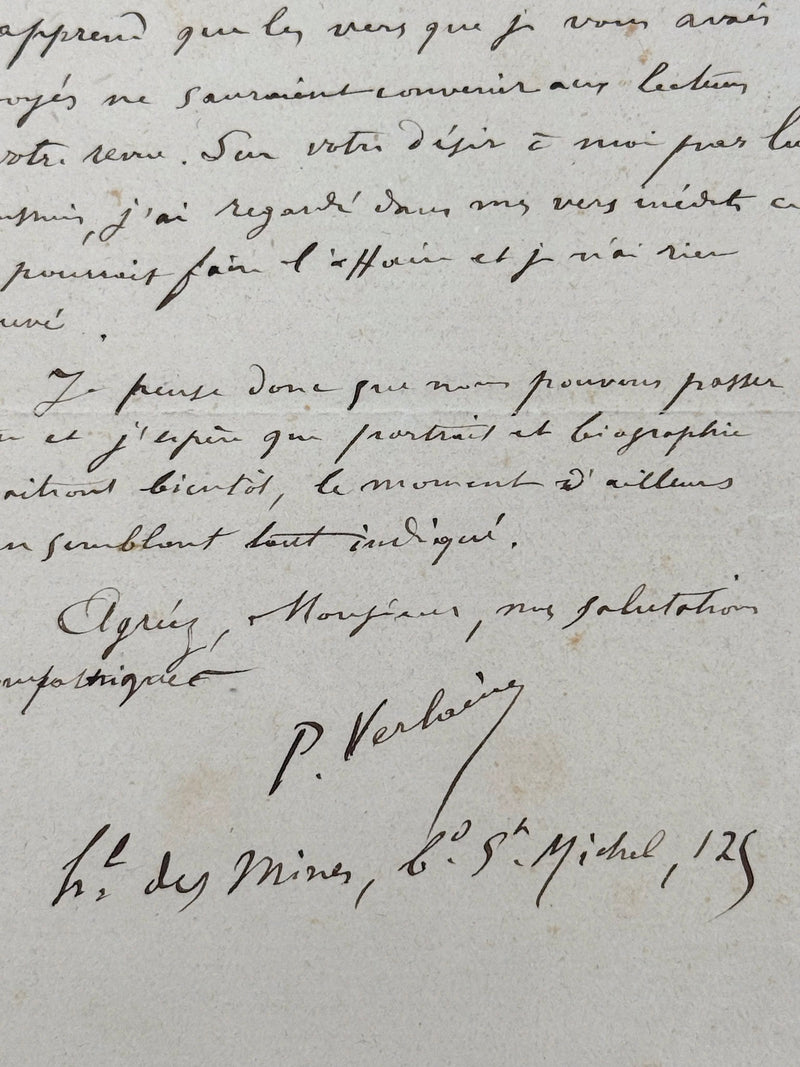 apprend que les vers que je vous avais
oyés ne sauraient convenir aux lecteurs
votre revue. Sur votre désir à moi par
j'ai regardé dans mes vers inédits ce
pourrait faire l'affaire et je n'ai rien
uvé.
Je pense donc que nous pouvons passer
et j'espère que portrait et biographie
aitront bientôt, le moment d'ailleurs
semblant tout indiqué.
Agréez, Monsieur, mes salutations
mpathiques
P. Verlaine
h.l des Mines, b.d S.t Michel, 125